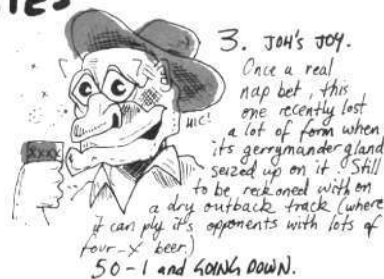 3. JOH'S JOY.
Once a real
nap bet, this
one recently lost
a lot of form when
its gerrymander gland
seized up on it. Still
to be reckoned with on
a dry outback track (where
it can ply it's opponents with lots of
four-x beer.)
50-1 and GOING DOWN.
HIC!
XXXX